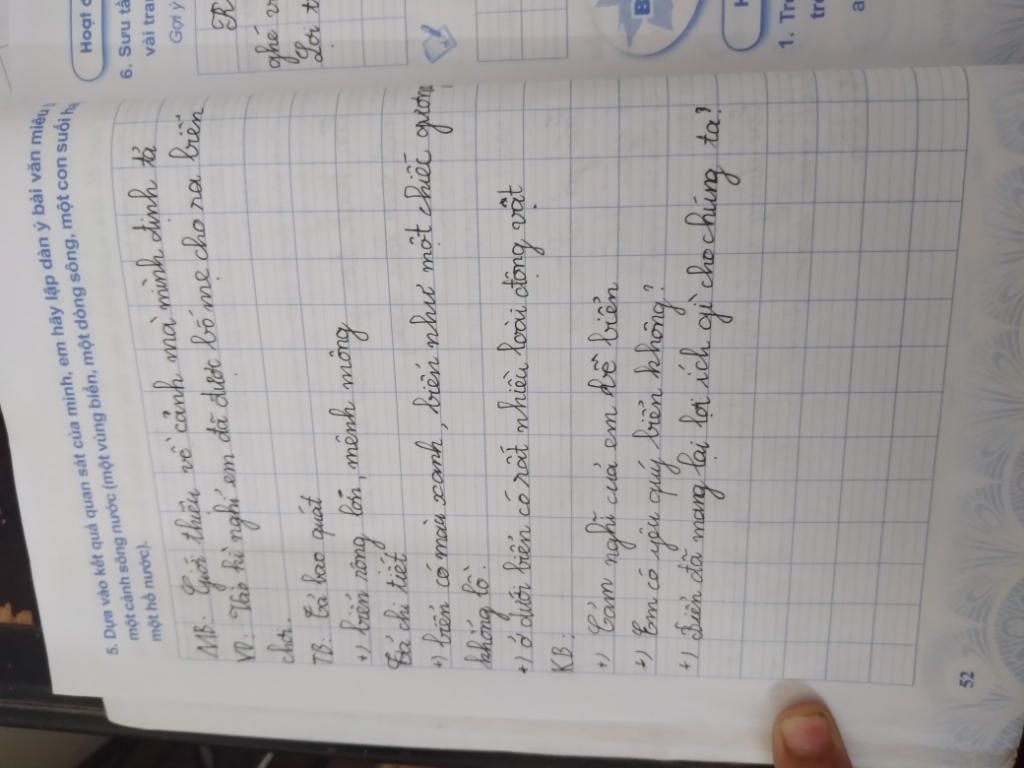 Hoạt đ
6. Sưu tầ
vài tran
Gợi ý
ghé
Lời t
B
H
1. Tr
tr
a
5. Dựa vào kết quả quan sát của mình, em hãy lập dàn ý bài văn miêu
một cảnh sông nước (một vùng biển, một dòng sông, một con suối h
một hồ nước).
MB: Giới thiệu về cảnh mà mình định tả
VD: Thè kì nghỉ em đã được bố mẹ cho ra biển
chơi.
TB: Tả bao quát
+) biển rộng lớn, mênh mông
Tả chi tiết
+) biển có màu xanh, biển như một chiếc gương
khổng lồ.
+) ở dưới biển có rất nhiều loài động vật
KB:
+) Cảm nghĩ của em về biển
+) Em có yêu quý biển không?
+) Biển đã mang lại lợi ích gì cho chúng ta?
52